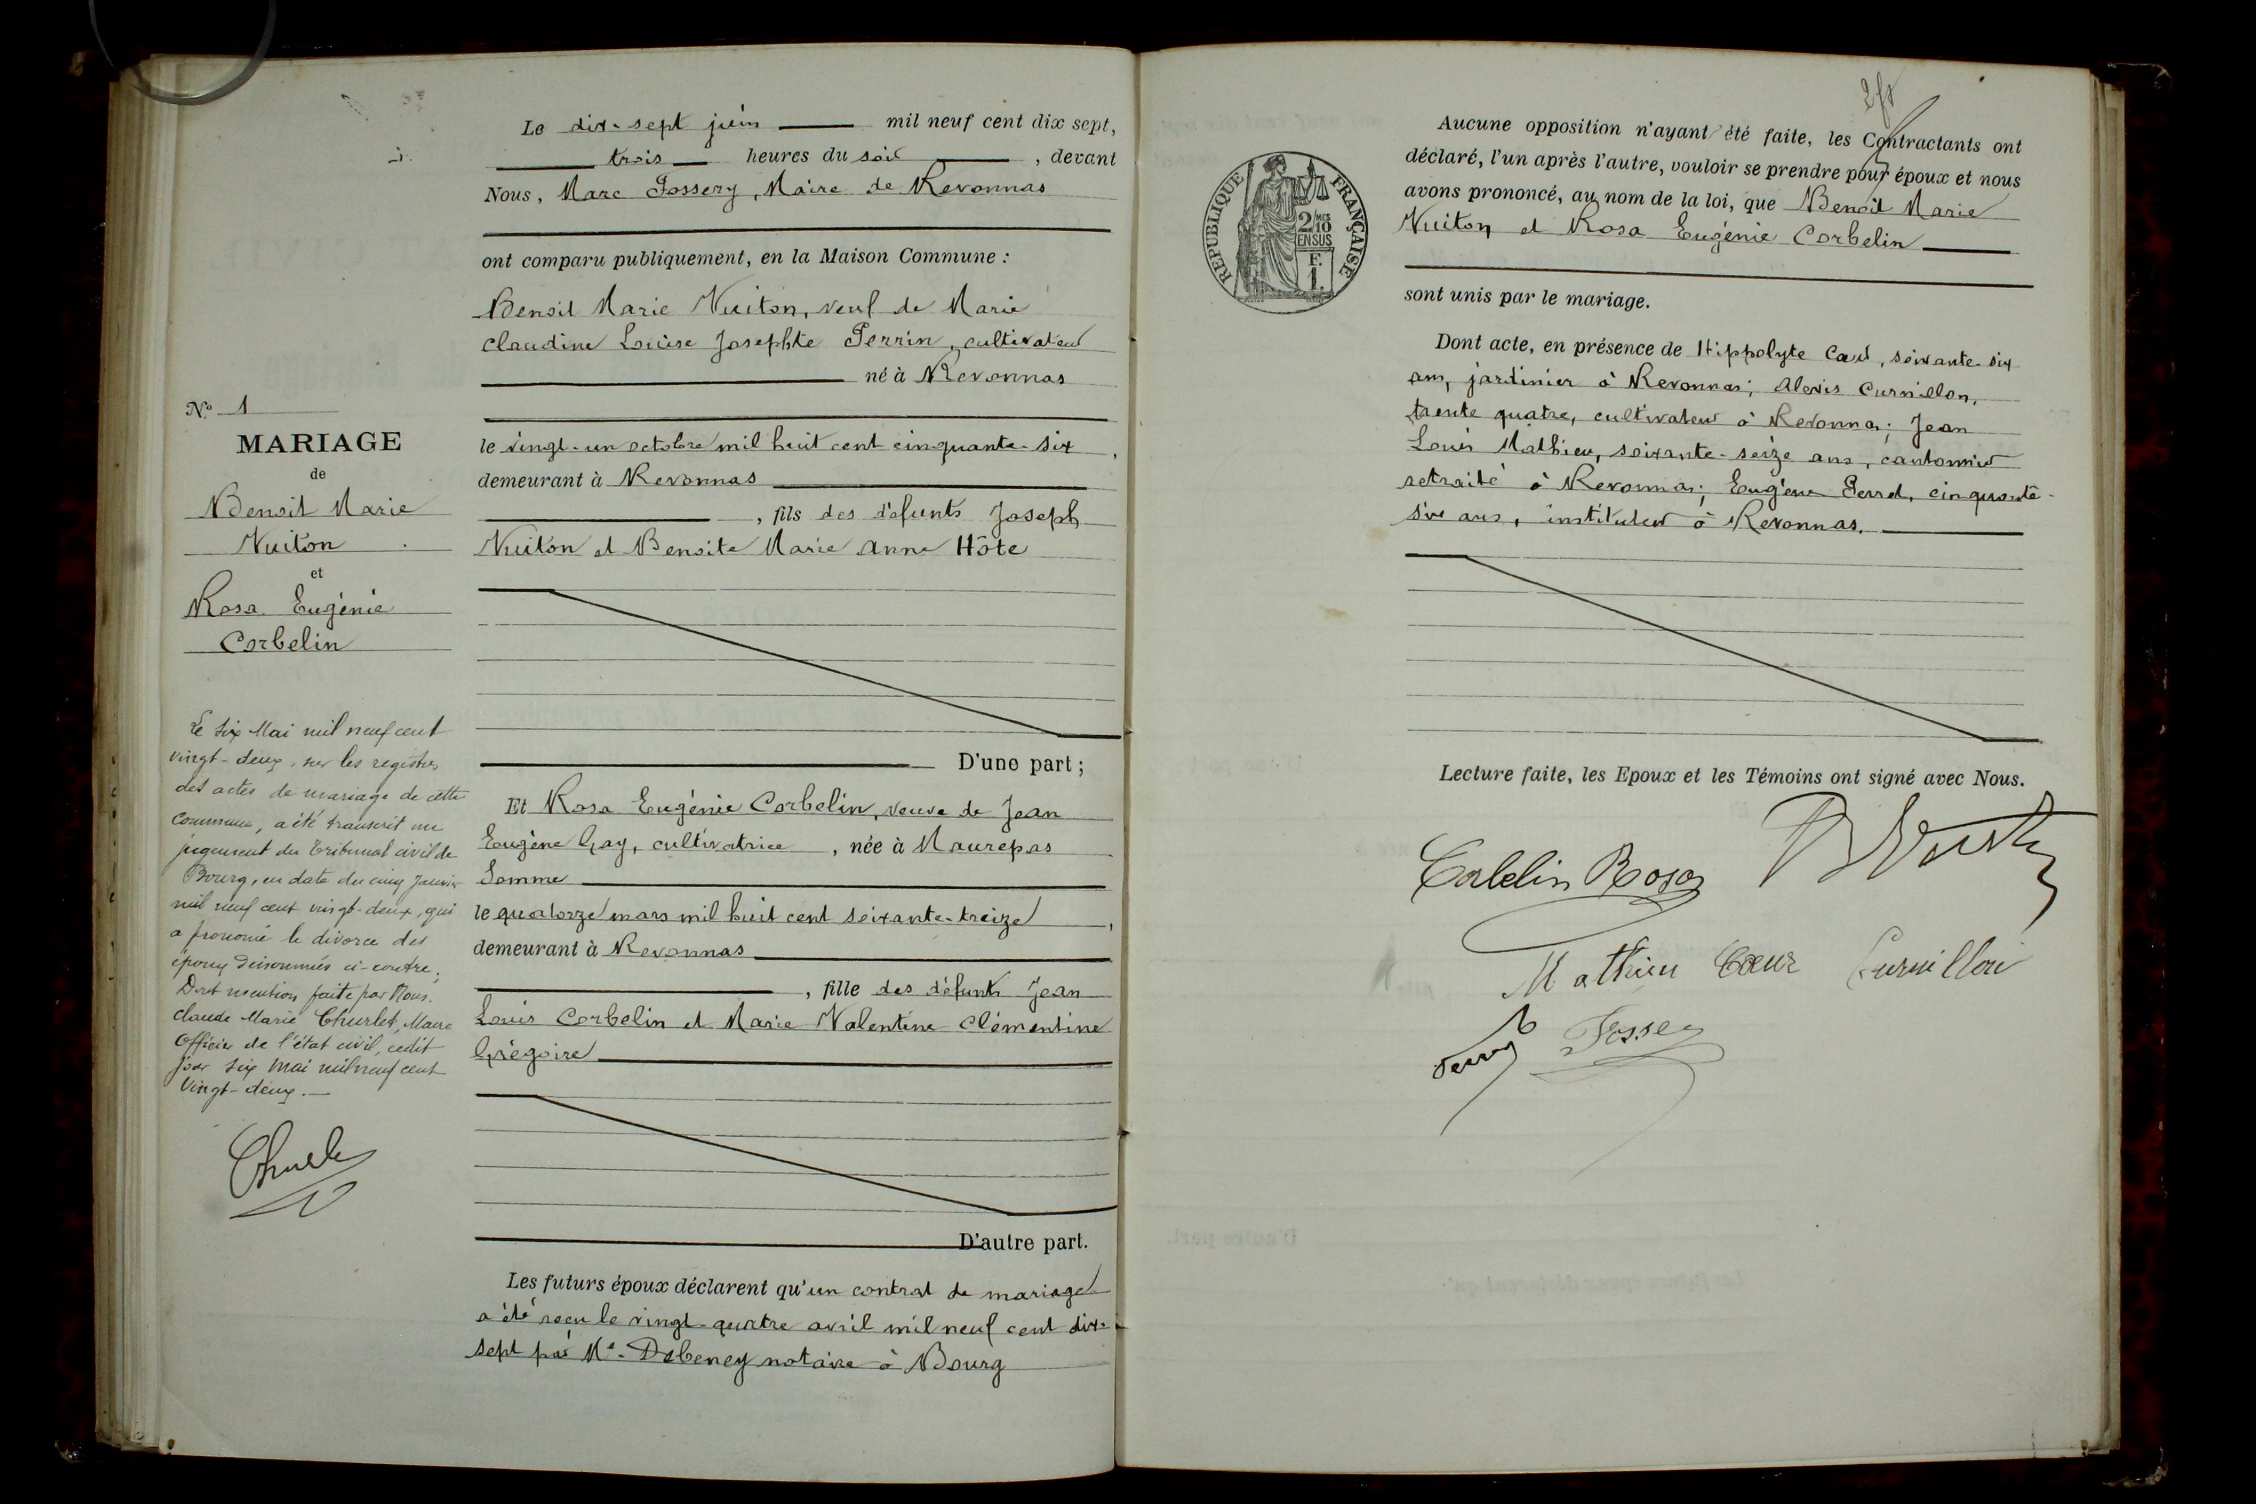 N° 1
MARIAGE
de
Benoit Marie
Vuiton
et
Rosa Eugénie
Corbelin
Le six Mai mil neuf cent
vingt-deux, sur les registres
des actes de mariage de cette
Commune, a été transcrit un
jugement du Tribunal civil de
Bourg, en date du cinq Janvier
mil neuf cent vingt-deux, qui
a prononcé le divorce des
époux dénommés ci-contre.
Dont mention faite par Nous.
Claude Marie Churlet, Maire
Officier de l'état civil, cedit
jour six Mai mil neuf cent
Vingt-deux.
Churlet
Le dix-sept juin mil neuf cent dix sept,
trois heures du soir, devant
Nous, Marc Fossery, Maire de Revonnas
ont comparu publiquement, en la Maison Commune :
Benoit Marie Vuiton, veuf de Marie
Claudine Louise Josephte Perrin, cultivateur
né à Revonnas
le vingt-un octobre mil huit cent cinquante-six,
demeurant à Revonnas
, fils des défunts Joseph
Vuiton et Benoite Marie Anne Hôte
D'une part ;
Et Rosa Eugénie Corbelin, veuve de Jean
Eugène Gay, cultivatrice, née à Maurepas
Somme
le quatorze mars mil huit cent soixante-treize,
demeurant à Revonnas
, fille des défunts Jean
Louis Corbelin et Marie Valentine Clémentine
Grégoire
D'autre part.
Les futurs époux déclarent qu'un contrat de mariage
a été reçu le vingt-quatre avril mil neuf cent dix-
sept par Me. Debeney notaire à Bourg
2 f
RÉPUBLIQUE FRANÇAISE
2/10 MES
EN SUS
F.
1.
Aucune opposition n'ayant été faite, les Contractants ont
déclaré, l'un après l'autre, vouloir se prendre pour époux et nous
avons prononcé, au nom de la loi, que Benoit Marie
Vuiton et Rosa Eugénie Corbelin
sont unis par le mariage.
Dont acte, en présence de Hippolyte Cœur, soixante-six
ans, jardinier à Revonnas; Alexis Curnillon,
trente quatre, cultivateur à Revonnas; Jean
Louis Mathieu, soixante-seize ans, cantonnier
retraité à Revonnas; Eugène Perret, cinquante-
six ans, instituteur à Revonnas.
Lecture faite, les Epoux et les Témoins ont signé avec Nous.
Corbelin Rosa
Mathieu Cœur Curnillon
Fossery